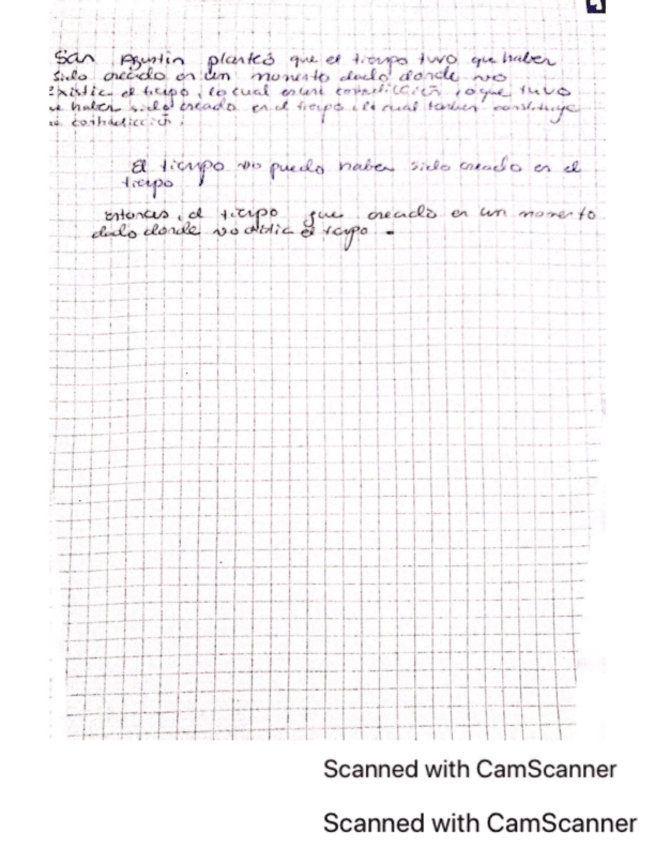 San Agustin planteó que el tiempo tuvo que haber
sido creado en un momento dado donde no
existia el tiempo, lo cual es una contradicción, o que tuvo
haber sido creado en el tiempo, lo cual tambien constituye
contradicción.
El tiempo no puede haber sido creado en el
tiempo
Entonces, el tiempo fue creado en un momento
dado donde no existia el tiempo.
Scanned with CamScanner
Scanned with CamScanner